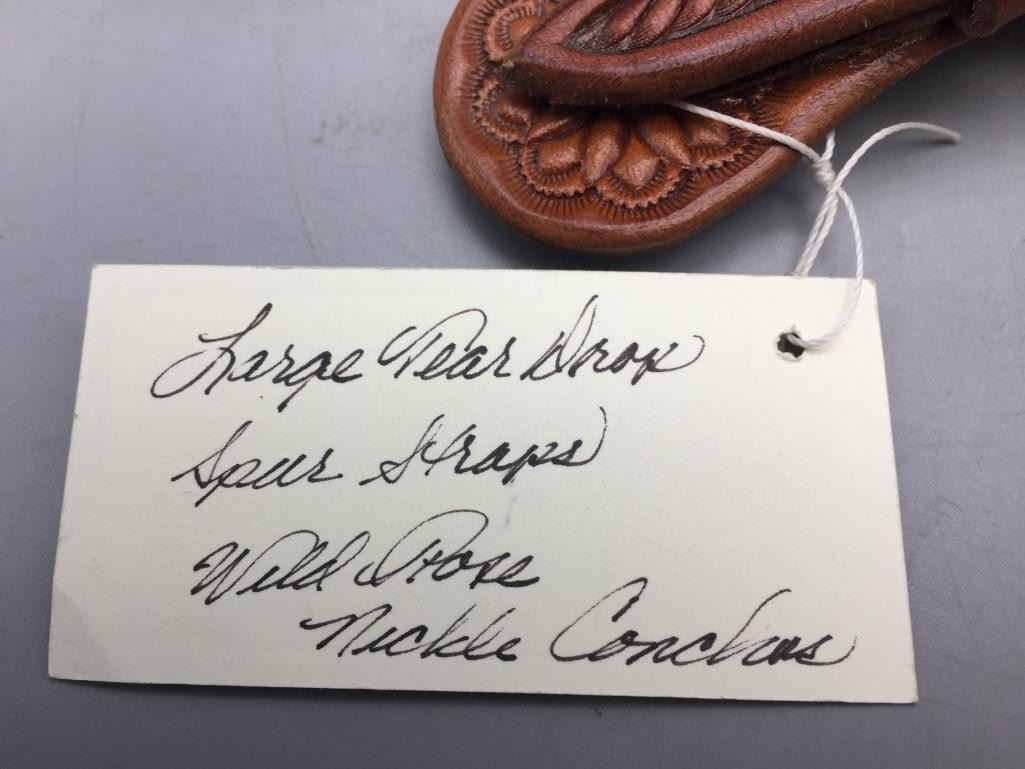 Large Tear Drop
Spur Straps
Wild Rose
Nickle Conchos